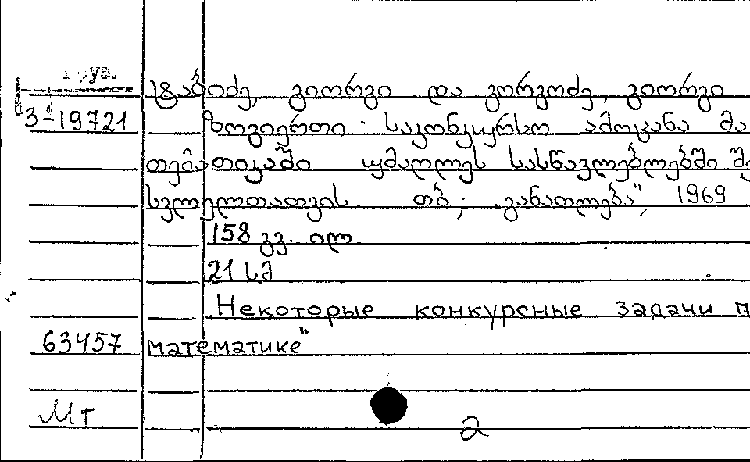 Груз.
გიორგი და გორგოძე, გიორგი
3-19721 ზოგიერთი საკონკურსო ამოცანა მა
თემატიკაში უმაღლეს სასწავლებლებში შე
სვლელთათვის თბ., „განათლება“, 1969
158 გვ. ილ.
21 სმ
Некоторые конкурсные задачи п
63457 математике"
Мт
2